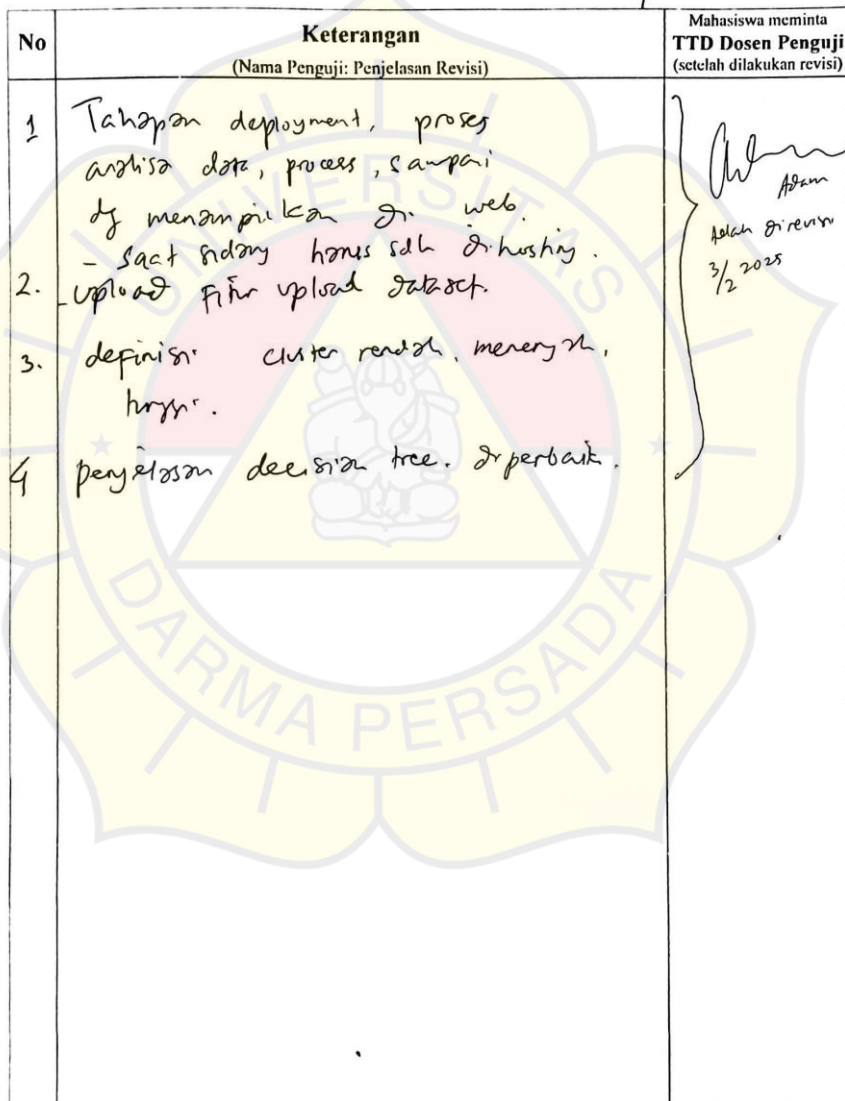 No
Keterangan
(Nama Penguji: Penjelasan Revisi)
Mahasiswa meminta
TTD Dosen Penguji
(setelah dilakukan revisi)
1 Tahapan deployment, proses
analisa data, process, sampai
dg menampilkan di web.
- saat sidang harus sdh dihosting.
2. - upload Fitur upload dataset.
3. definisi cluster rendah, menengah,
tinggi.
4 penjelasan decision tree. diperbaiki.
Adam
telah direvisi
3/2 2025
UNIVERSITAS
DARMA PERSADA